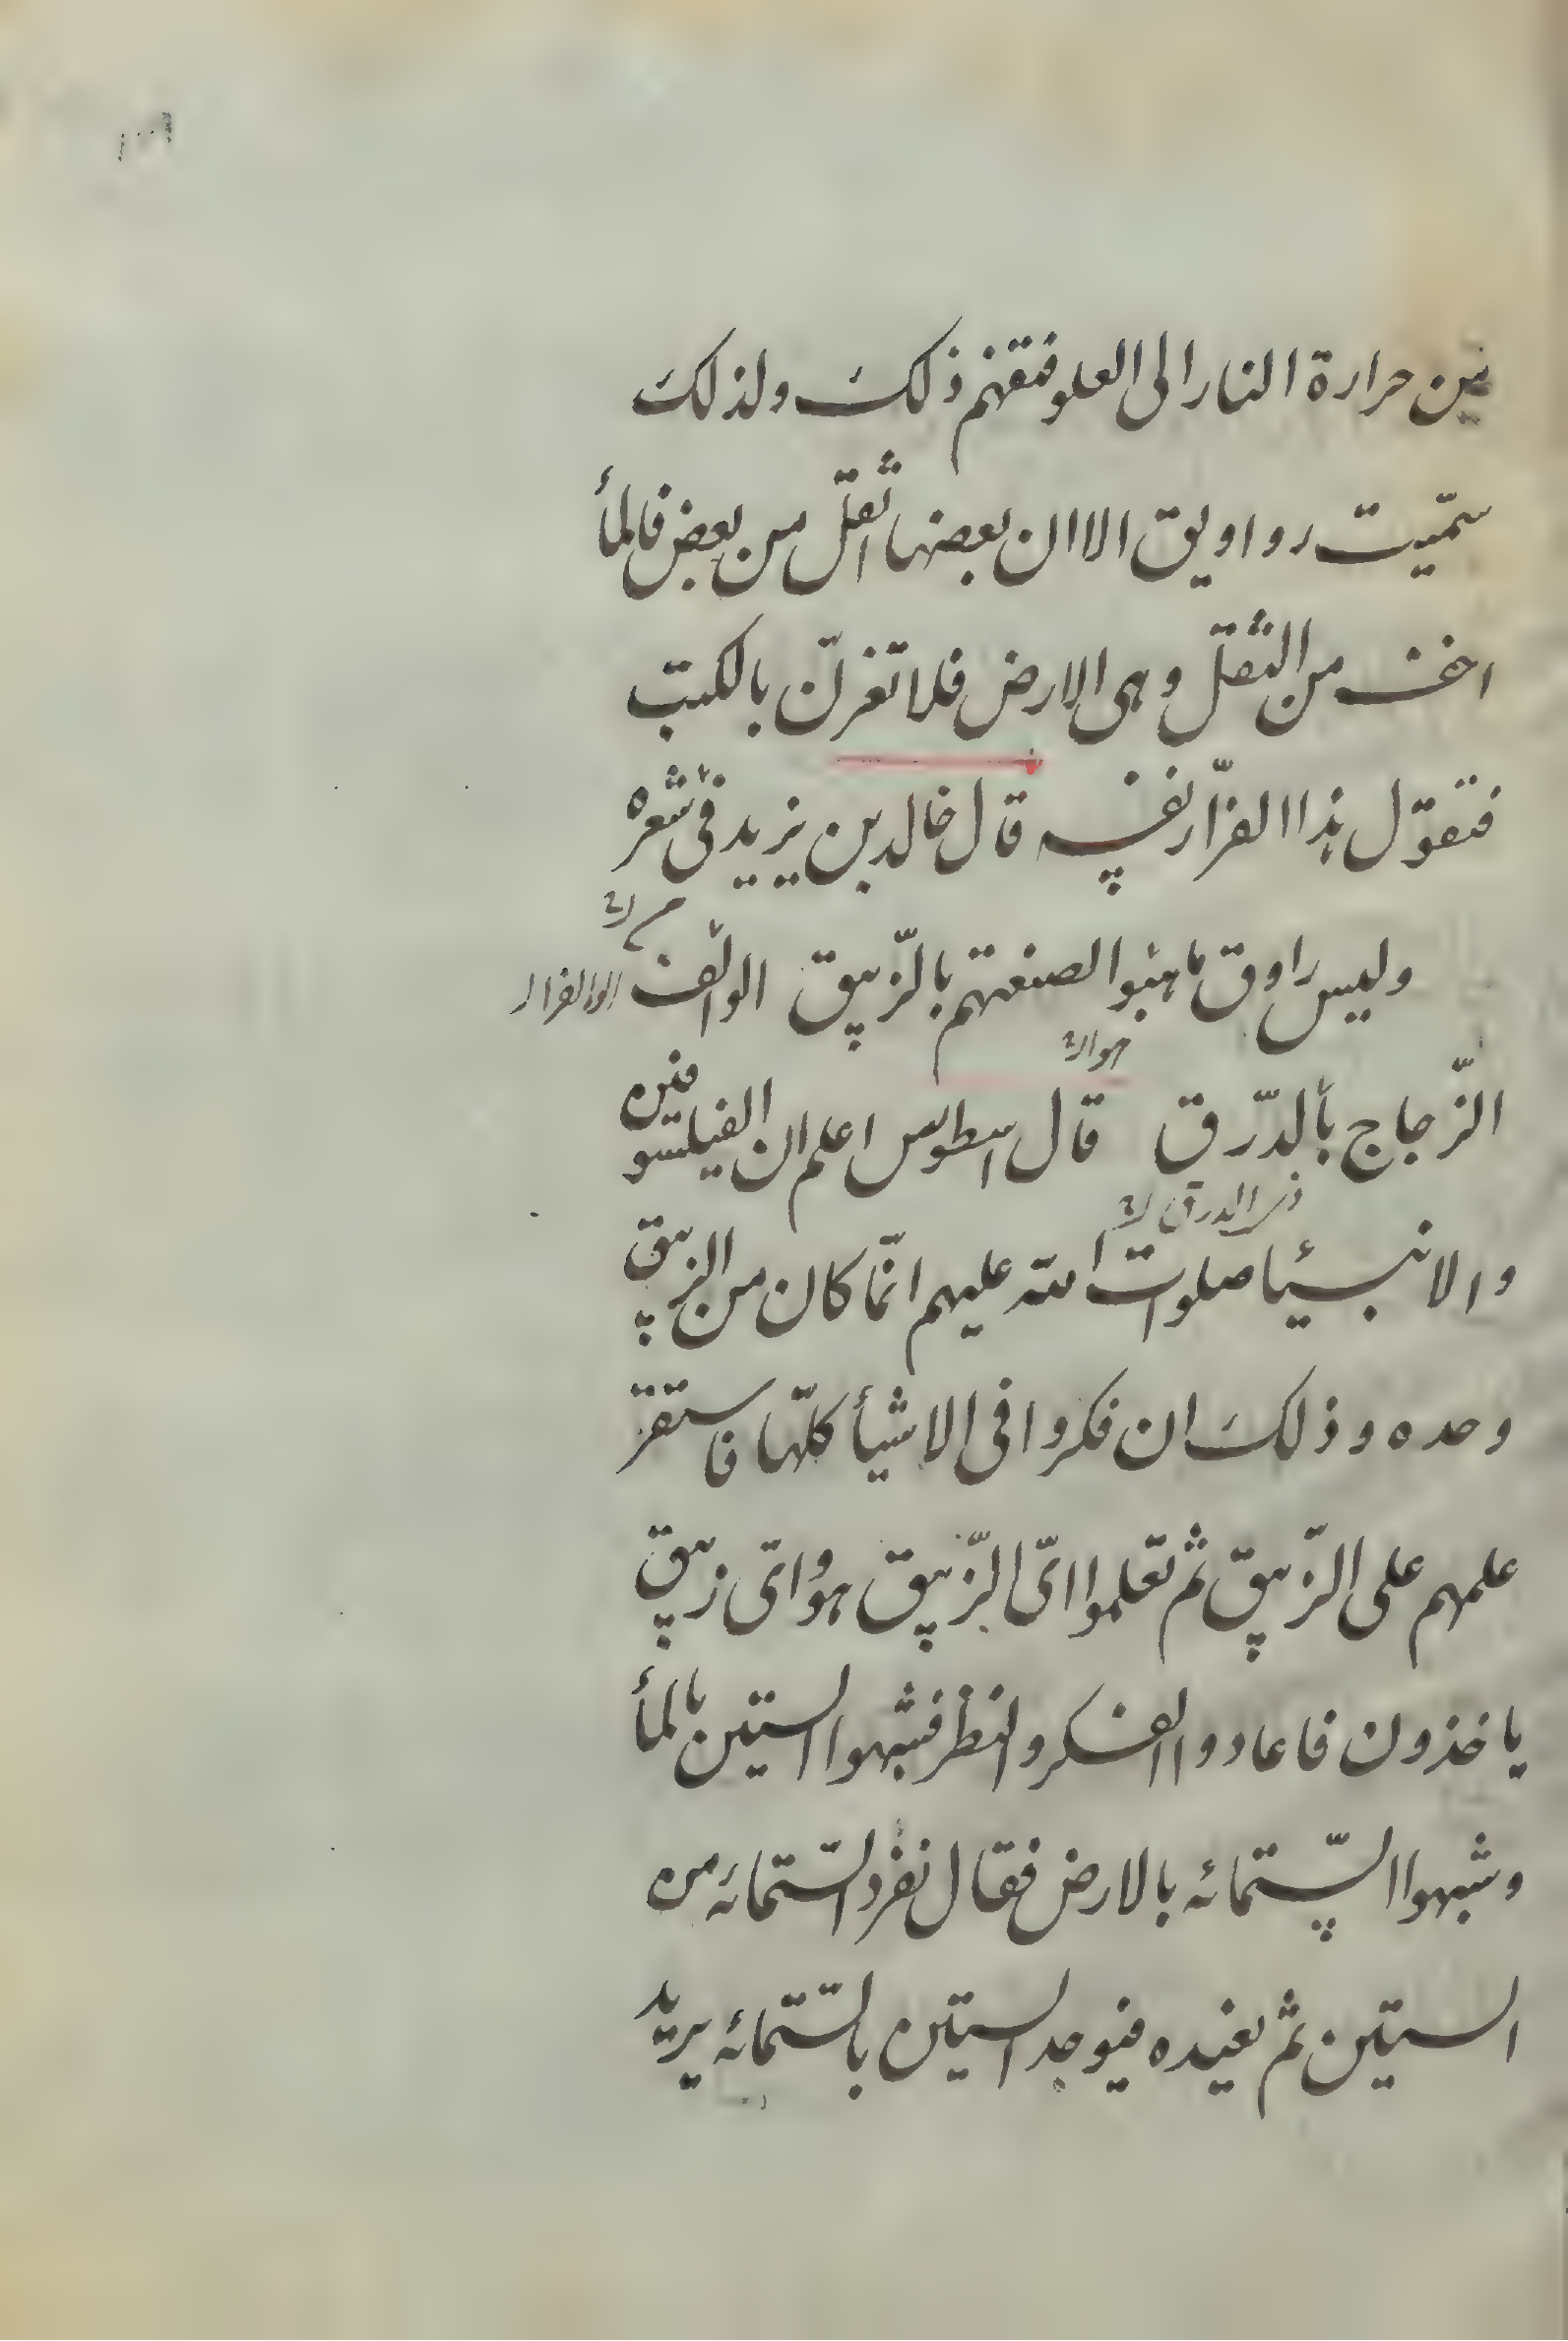 من حرارة النار الى العلو فتفهم ذلك ولذلك
سمّيت رواويق الا ان بعضها اثقل من بعض فالمأ
اخف من الثقل وهى الارض فلا تغرنّ بالكتب
فتقول هذا الفرّار نفسه قال خالد بن يزيد فى شعره
وليس راوق ما هنوا لصنعتهم بالزّيبق الوالف
الزّجاج بالدّرق قال اسطوس اعلم ان الفيلسوفين
والانبيئا صلوات الله عليهم انّما كان من الزيبق
وحده وذلك ان فكروا فى الاشيأ كلّها فاستقرّ
علمهم على الزّيبق ثم تعلموا اىّ الزّيبق هو واىّ زيبق
ياخذون فاعادوا الفكر والنظر فشبهوا الستين بالمأ
وشبهوا السّتمائه بالارض فقال نفرد السّتمائه من
الستين ثم نعيده فيوجد الستين بالسّتمائه يريد